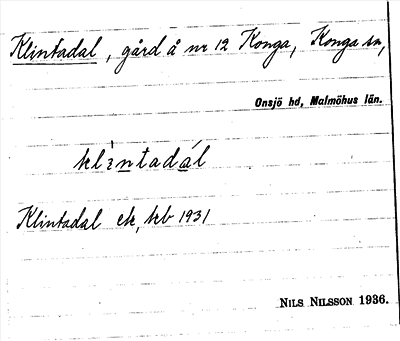 Klintadal, gård å nr 12 Konga, Konga sn,
Onsjö hd, Malmöhus län.
klìntadál
Klintadal ek, krb 1931
NILS NILSSON 1936.